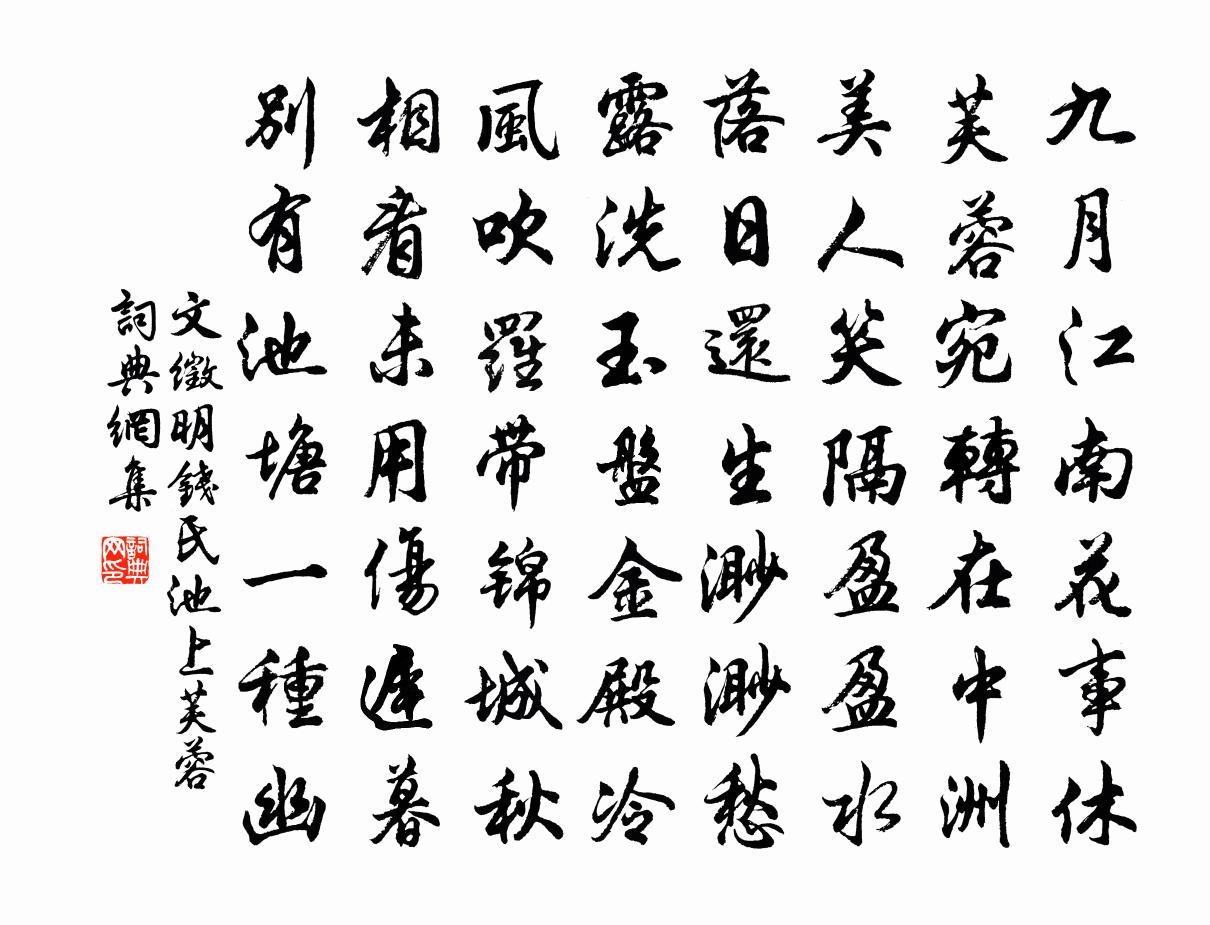 九月江南花事休
芙蓉宛轉在中洲
美人笑隔盈盈水
落日還生渺渺愁
露洗玉盤金殿冷
風吹羅帶錦城秋
相看未用傷遲暮
別有池塘一種幽
文徵明錢氏池上芙蓉
詞典網集
詞典網印